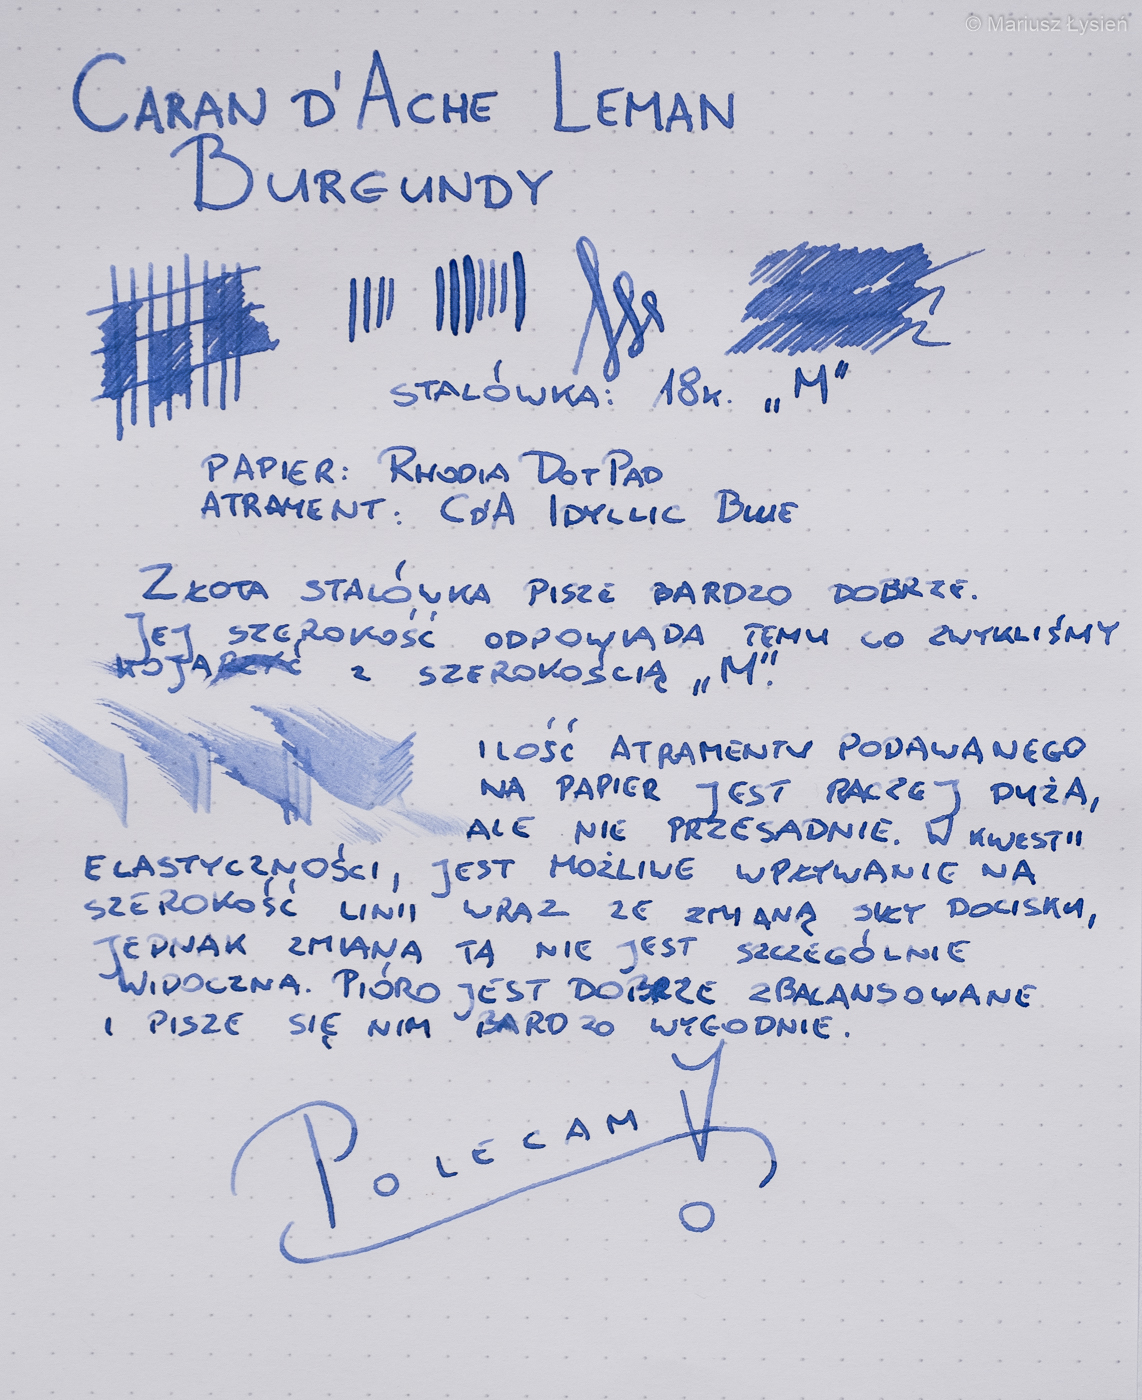 © Mariusz Łysień
CARAN D'ACHE LEMAN
BURGUNDY
STALÓWKA: 18K. „M"
PAPIER: RHODIA DOTPAD
ATRAMENT: CD'A IDYLLIC BLUE
ZŁOTA STALÓWKA PISZE BARDZO DOBRZE.
JEJ SZEROKOŚĆ ODPOWIADA TEMU CO ZWYKLIŚMY
KOJARZYĆ Z SZEROKOŚCIĄ „M".
ILOŚĆ ATRAMENTU PODAWANEGO
NA PAPIER JEST RACZEJ DUŻA,
ALE NIE PRZESADNIE. W KWESTII
ELASTYCZNOŚCI, JEST MOŻLIWE WPŁYWANIE NA
SZEROKOŚĆ LINII WRAZ ZE ZMIANĄ SIŁY DOCISKU,
JEDNAK ZMIANA TA NIE JEST SZCZEGÓLNIE
WIDOCZNA. PIÓRO JEST DOBRZE ZBALANSOWANE
I PISZE SIĘ NIM BARDZO WYGODNIE.
POLECAM!